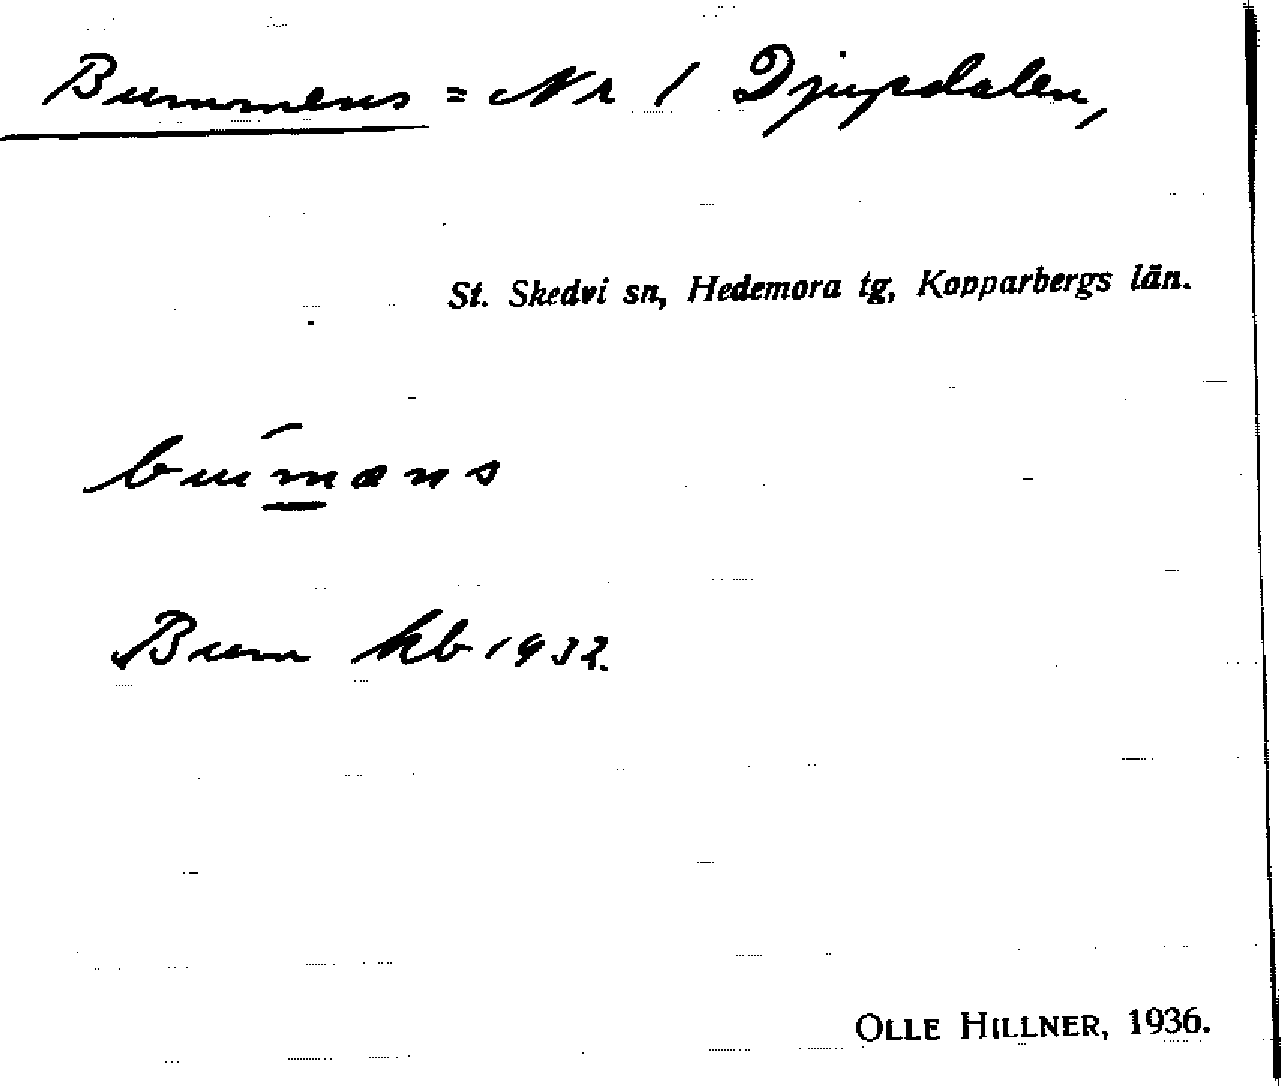 Bummens = Nr 1 Djupdalen,
St. Skedvi sn, Hedemora tg, Kopparbergs län.
buḿ̲æns
Bum kb 1932.
OLLE HILLNER, 1936.